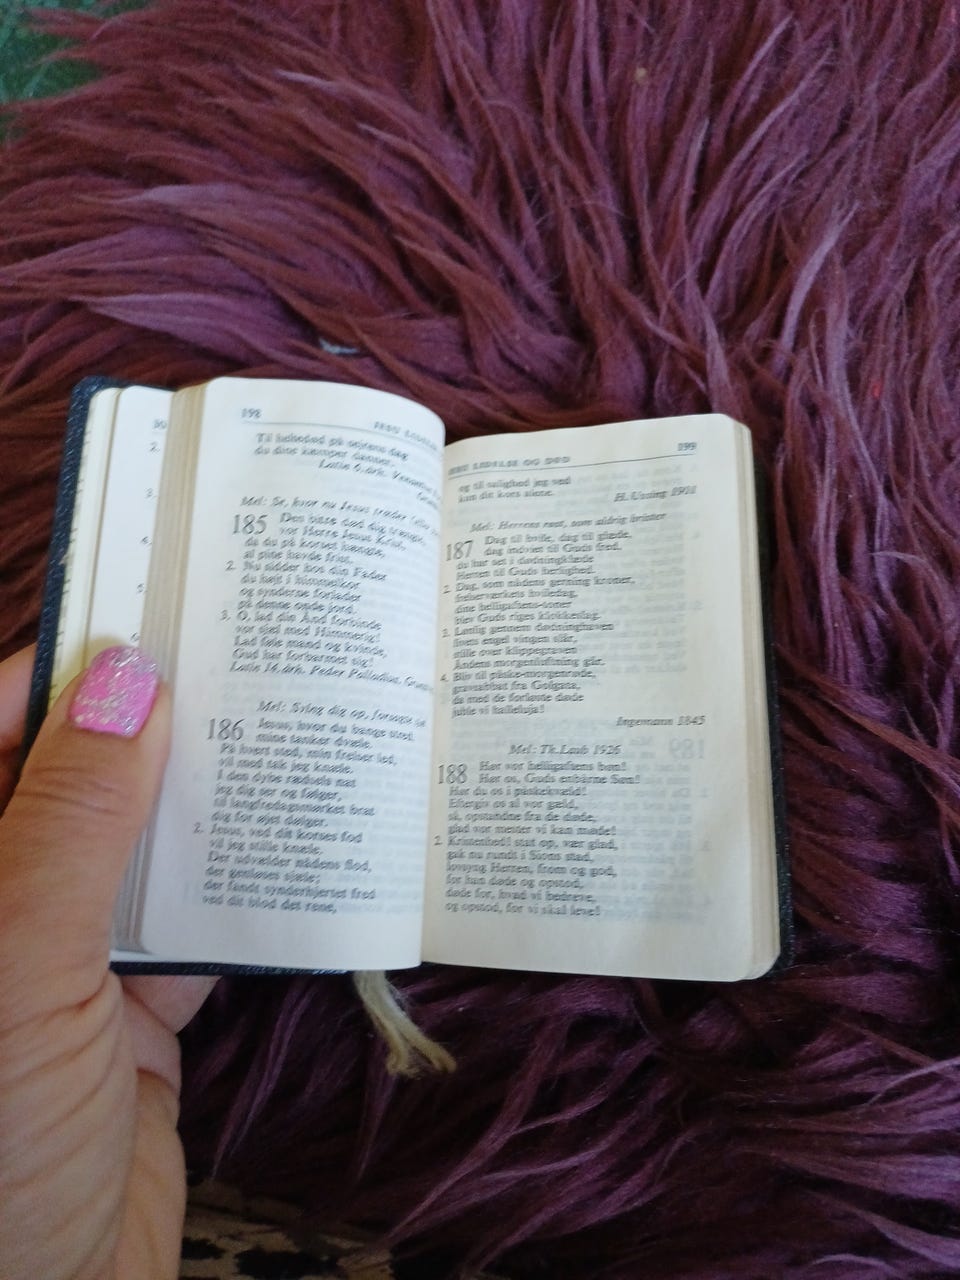 198
JESU LIDELSE
Til heltedød på sejrens dag
du dine kæmper danner.
Latin 6. årh.
Mel: Se, hvor nu Jesus træder
185 Den bitre død dig trængte,
vor Herre Jesus Krist,
da du på korset hængte,
al pine havde frist.
2. Nu sidder hos din Fader
du højt i himmelkor
og synderne forlader
på denne onde jord.
3. O, lad din Ånd forbinde
vor sjæl med Himmerig!
Lad føle mand og kvinde,
Gud har forbarmet sig!
Latin 14. årh. Peder Palladius.
Mel: Sving dig op,
186 Jesus, hvor du bange sted.
mine tanker dvæle.
På hvert sted, min frelser led,
vil med tak jeg knæle.
I den dybe rædsels nat
jeg dig ser og følger,
til langfredagsmørket brat
dig for øjet dølger.
2. Jesus, ved dit korses fod
vil jeg stille knæle.
Der udvælder nådens flod,
der genløses sjæle;
der fandt synderhjertet fred
ved dit blod det rene,
2.
3.
4.
5.
6
JESU LIDELSE OG DØD
199
og til salighed jeg ved
kun dit kors alene.
H. Ussing 1911
Mel: Herrens røst, som aldrig brister
187 Dag til hvile, dag til glæde,
dag indviet til Guds fred,
du har set i dødningklæde
Herren til Guds herlighed.
2. Dag, som nådens gerning kroner,
frelserværkets hviledag,
dine helligaftens-toner
blev Guds riges klokkeslag.
3. Lønlig gennem dødninghaven
livets engel vingen slår,
stille over klippegraven
Åndens morgenluftning går.
4. Bliv til påske-morgenrøde,
gravsabbat fra Golgata,
da med de forløste døde
juble vi halleluja!
Ingemann 1845
Mel: Th. Laub 1926
188 Hør vor helligaftens bøn!
Hør os, Guds enbårne Søn!
Hør du os i påskekvæld!
Eftergiv os al vor gæld,
så, opstandne fra de døde,
glad vor mester vi kan møde!
2. Kristenhed! stat op, vær glad,
gak nu rundt i Sions stad,
lovsyng Herren, from og god,
for han døde og opstod,
døde for, hvad vi bedreve,
og opstod, for vi skal leve!